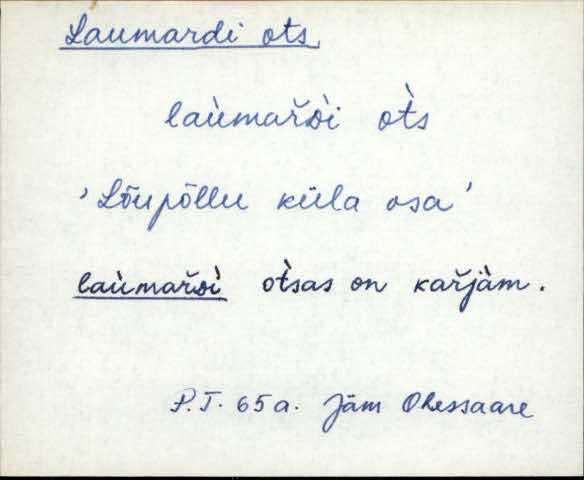 Laumardi ots,
laùmařᴅ̀i ot̀s
'Lõupõllu küla osa'
laùmařᴅì ot̀sas on kařjàm.
P.T. 65a. Jäm Ohessaare